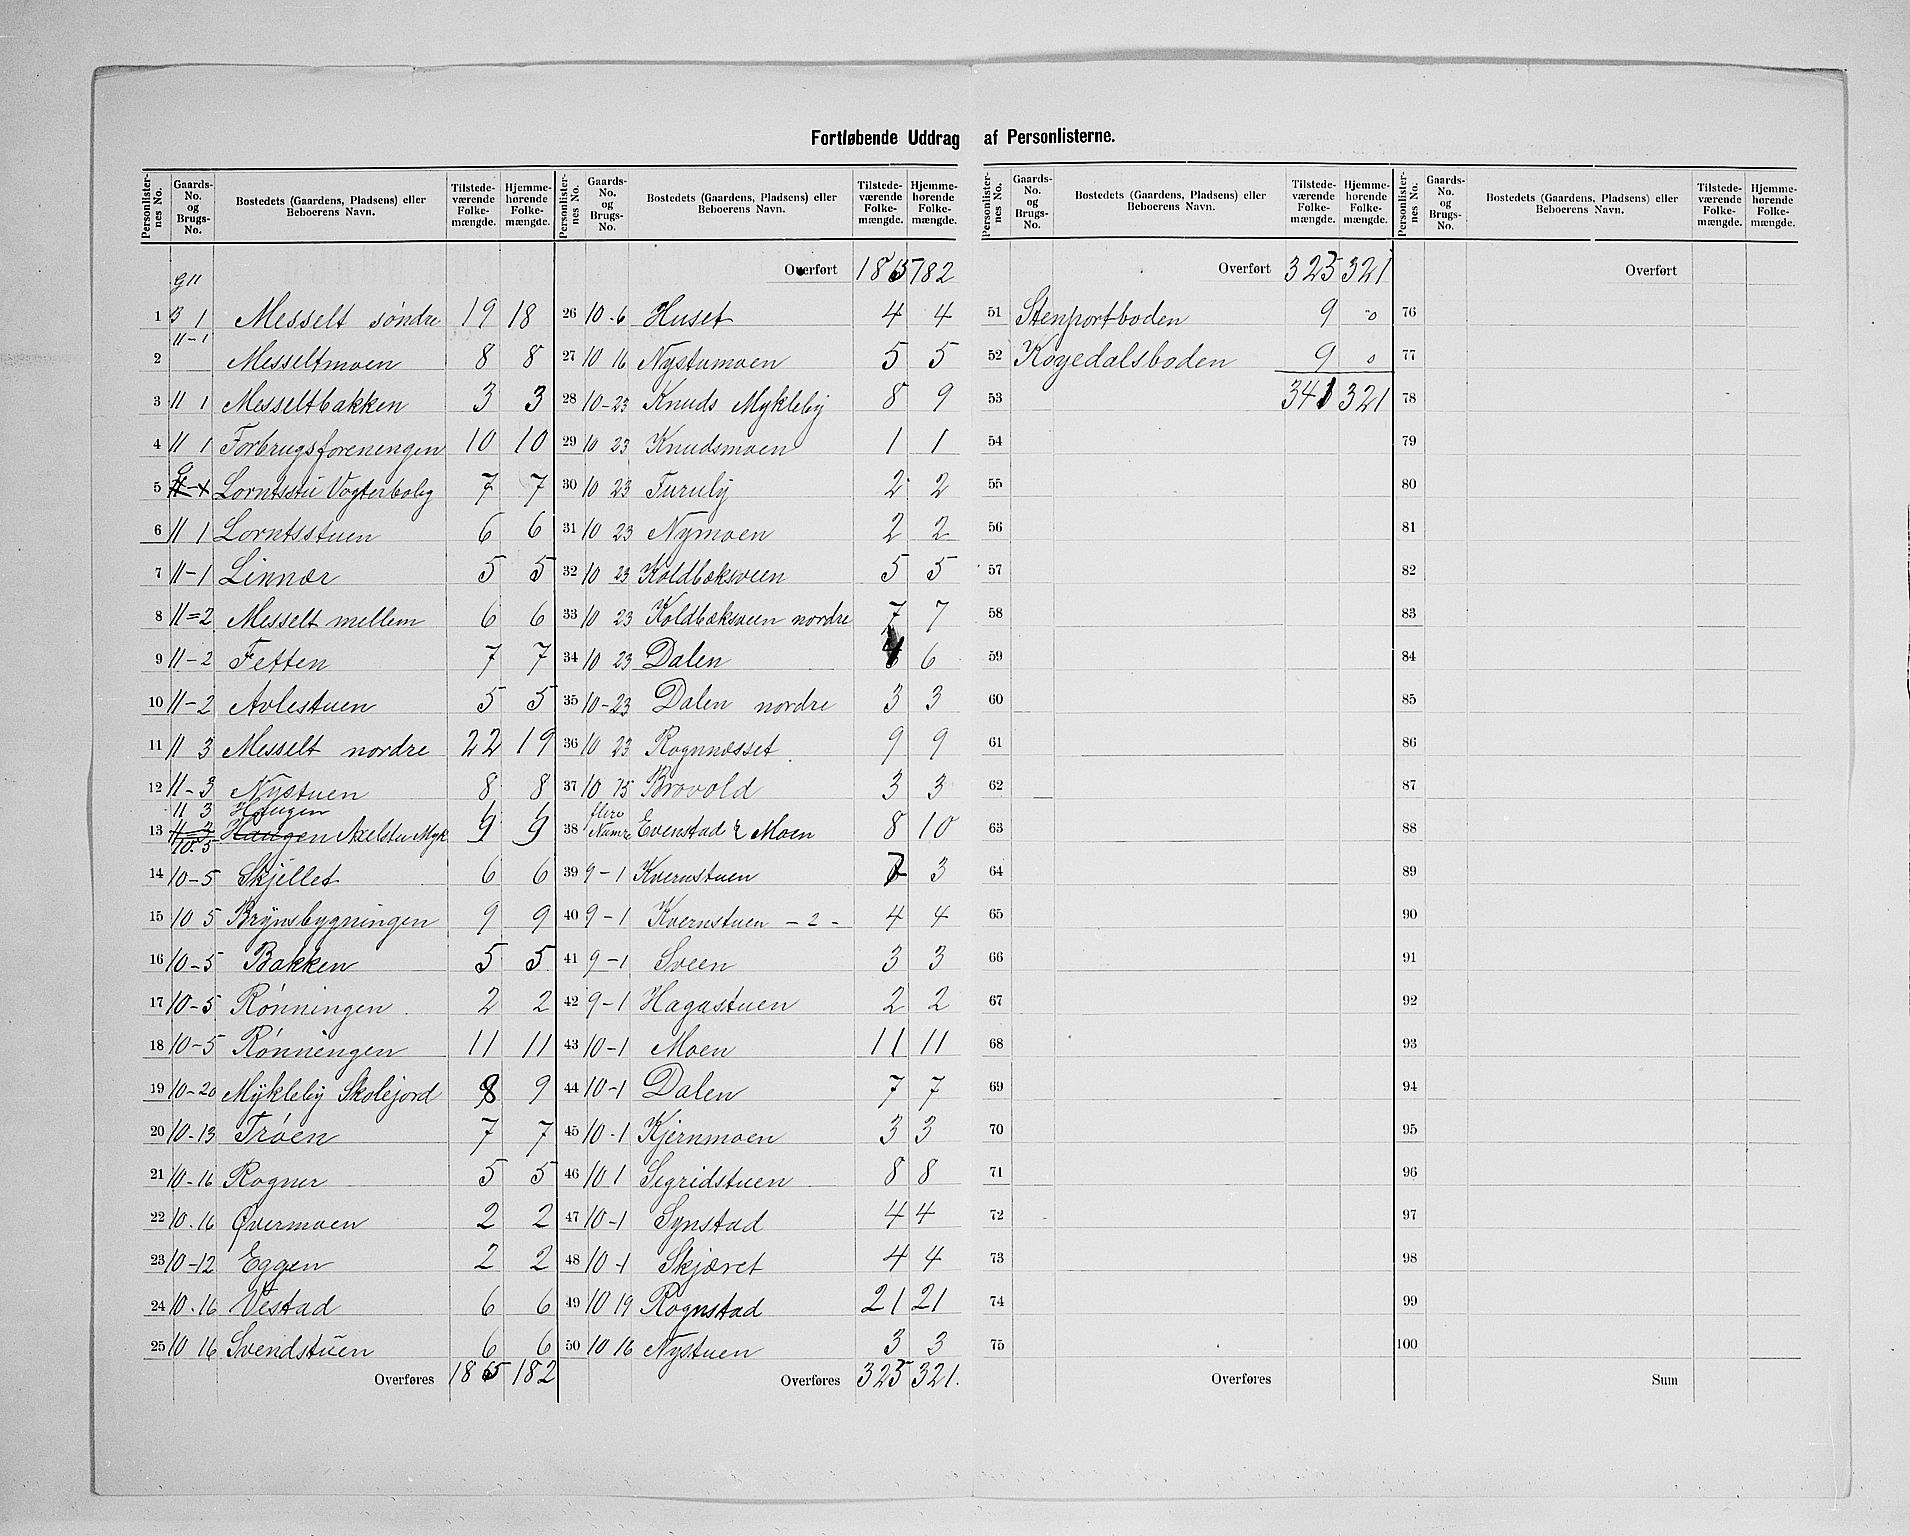 Fortløbende Uddrag af Personlisterne.
Personlister-nes No. Gaards-No. og Brugs-No. Bostedets (Gaardens, Pladsens) eller Beboerens Navn. Tilstede-værende Folke-mængde. Hjemme-hørende Folke-mængde.
g 11
1 3 1 Messelt søndre 19 18
2 11-1 Messeltmoen 8 8
3 11 1 Messeltbakken 3 3
4 11 1 Forbrugsforeningen 10 10
5 Lorntsstu Vogterbolig 7 7
6 11 1 Lorntsstuen 6 6
7 11-1 Linnær 5 5
8 11=2 Messelt mellem 6 6
9 11-2 Fetten 7 7
10 11-2 Avlestuen 5 5
11 11 3 Messelt nordre 22 19
12 11-3 Nystuen 8 8
11 3 Haugen 6 6
13 10.5 Haugen Axelstu Myk 9 9
14 10-5 Skjellet 6 6
15 10 5 Brynsbygningen 9 9
16 10-5 Bakken 5 5
17 10-5 Rønningen 2 2
18 10-5 Rønningen 11 11
19 10-20 Mykleby Skolejord 8 9
20 10-13 Trøen 7 7
21 10-16 Rogner 5 5
22 10.16 Øvermoen 2 2
23 10-12 Eggen 2 2
24 10.16 Vestad 6 6
25 10 16 Svendstuen 6 6
Overføres 185 182
Personlister-nes No. Gaards-No. og Brugs-No. Bostedets (Gaardens, Pladsens) eller Beboerens Navn. Tilstede-værende Folke-mængde. Hjemme-hørende Folke-mængde.
Overført 185 182
26 10.6 Huset 4 4
27 10 16 Nystumoen 5 5
28 10-23 Knuds Mykleby 8 9
29 10 23 Knudsmoen 1 1
30 10 23 Furuly 2 2
31 10 23 Nymoen 2 2
32 10 23 Koldbæksveen 5 5
33 10 23 Koldbæksveen nordre 7 7
34 10 23 Dalen 4 6
35 10-23 Dalen nordre 3 3
36 10 23 Rognnæsset 9 9
37 10 15 Brovold 3 3
38 flere Numre Evenstad & Moen 8 10
39 9-1 Kvernstuen 3
40 9-1 Kvernstuen -2- 4 4
41 9-1 Sveen 3 3
42 9-1 Hagastuen 2 2
43 10-1 Moen 11 11
44 10-1 Dalen 7 7
45 10-1 Kjernmoen 3 3
46 10 1 Sigridstuen 8 8
47 10-1 Synstad 4 4
48 10-1 Skjæret 4 4
49 10 19 Rognstad 21 21
50 10 16 Nystuen 3 3
Overføres 325 321.
Personlister-nes No. Gaards-No. og Brugs-No. Bostedets (Gaardens, Pladsens) eller Beboerens Navn. Tilstede-værende Folke-mængde. Hjemme-hørende Folke-mængde.
Overført 325 321
51 Stenportboden 9 o
52 Kogedalsboden 9 o
53 341 321
54
55
56
57
58
59
60
61
62
63
64
65
66
67
68
69
70
71
72
73
74
75
Overføres
Personlister-nes No. Gaards-No. og Brugs-No. Bostedets (Gaardens, Pladsens) eller Beboerens Navn. Tilstede-værende Folke-mængde. Hjemme-hørende Folke-mængde.
Overført
76
77
78
79
80
81
82
83
84
85
86
87
88
89
90
91
92
93
94
95
96
97
98
99
100
Sum